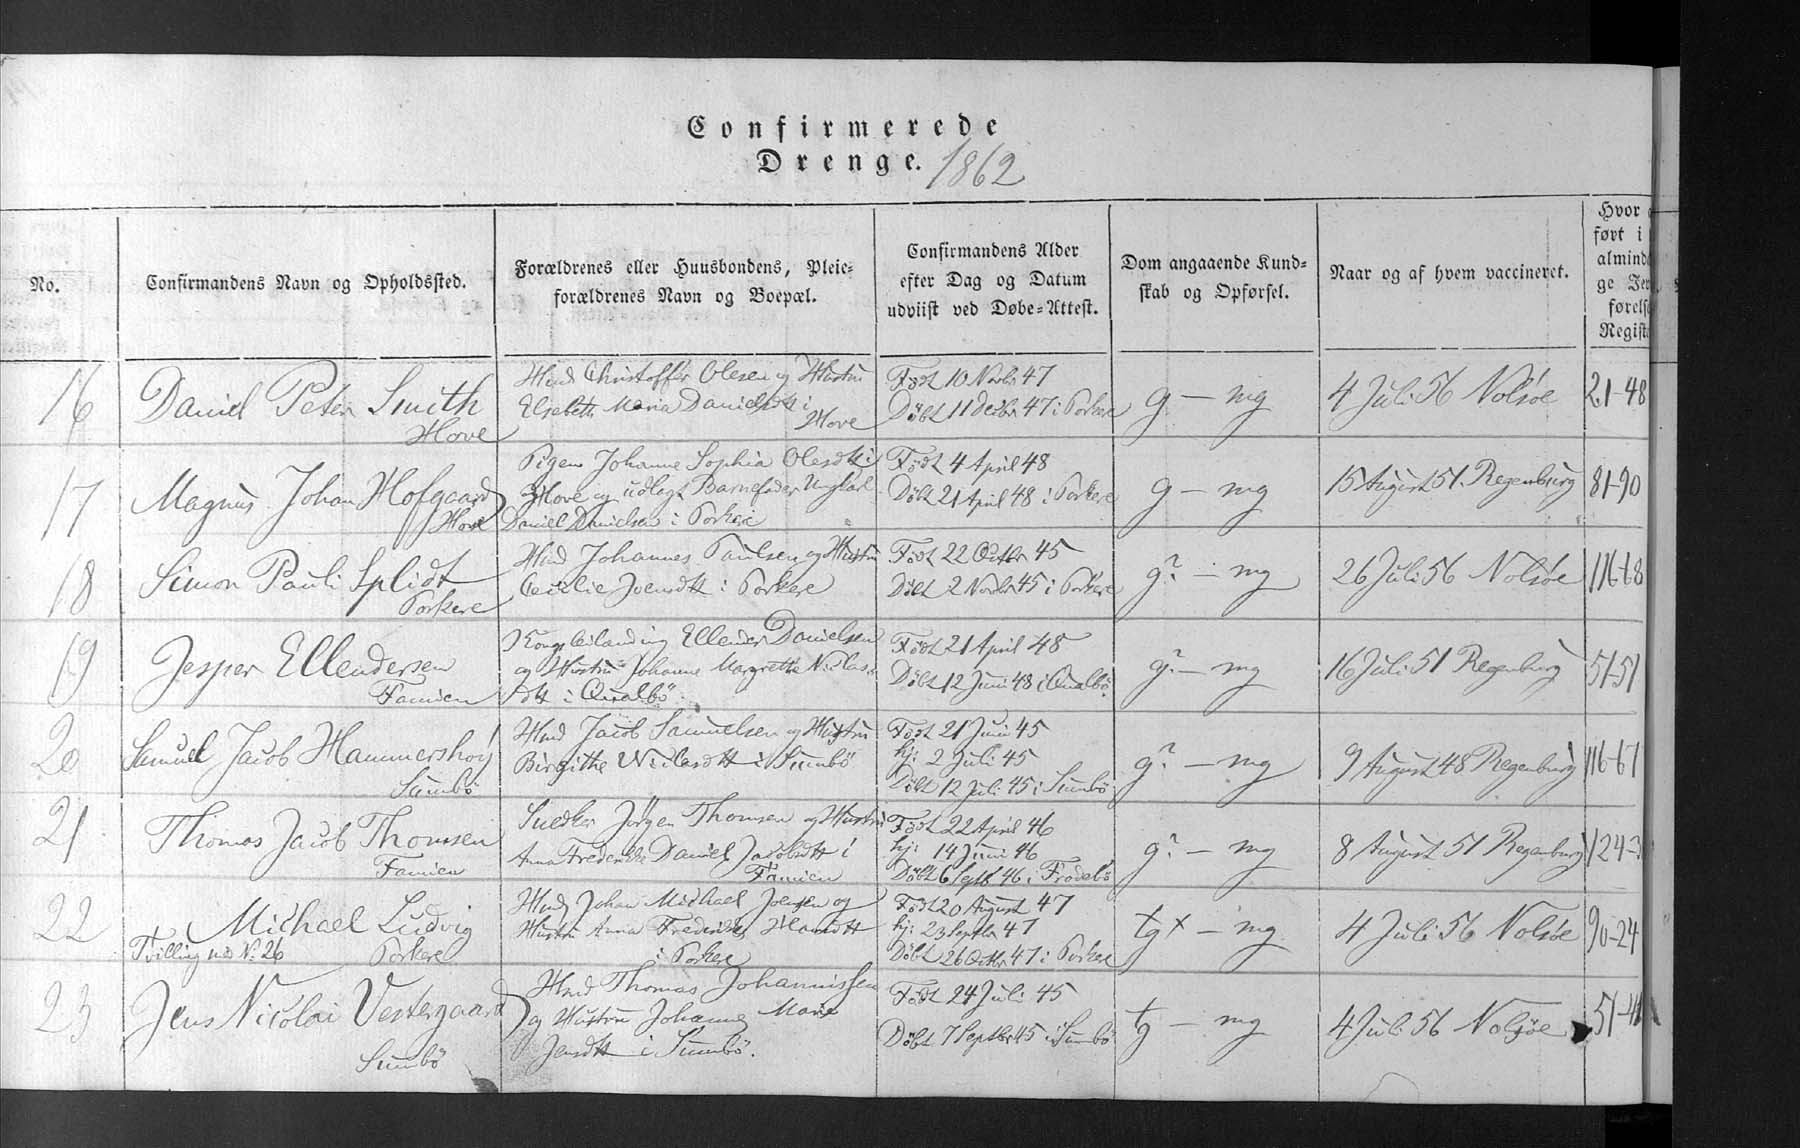 Confirmerede
Drenge. 1862
No.
Confirmandens Navn og Opholdssted.
Forældrenes eller Huusbondens, Pleie-
forældrenes Navn og Boepæl.
Confirmandens Alder
efter Dag og Datum
udviist ved Døbe-Attest.
Dom angaaende Kund-
skab og Opførsel.
Naar og af hvem vaccineret.
Hvor
ført i
almind
ge Jev
førelse
Regist
16
Daniel Peter Smith
Hove
Hmd Christoffer Olesen og Hustru
Elsebeth Maria Danielsdtt i
Hove
Født 10 Novbr 47
Døbt 11 Decbr 47 i Porkere
g – mg
4 Juli 56 Nolsöe
21-48
17
Magnus Johan Hofgaard
Hove
Pigen Johanne Sophia Olesdtt i
Hove og udlagt Barnefader Ungkarl
Daniel Danielsen i Porkere
Født 4 April 48
Døbt 21 April 48 i Porkere
g – mg
15 August 51. Regenburg
81-90
18
Simon Pauli Splidt
Porkere
Hmd Johannes Paulsen og Hustru
Cecilie Joensdtt i Porkere
Født 22 Octbr 45
Döbt 2 Novbr 45 i Porkere
g? – mg
26 Juli 56 Nolsöe
116-68
19
Jesper Ellendersen
Famien
Kongsleilænding Ellender Danielsen
og Hustru Johanne Margrethe Niclas-
dtt i Qualbö.
Födt 21 April 48
Döbt 12 Juni 48 i Qualbö.
g? – mg
16 Juli 51 Regenburg
51-51
20
Samuel Jacob Hammershöj
Sumbö
Hmd Jacob Samuelsen og Hustru
Birgithe Niclasdtt i Sumbö
Født 21 Juni 45
hj: 2 Juli 45
Döbt 12 Juli 45 i Sumbö
g? – mg
9 August 48 Regenburg
116-67
21
Thomas Jacob Thomsen
Famien
Snedker Jörgen Thomsen og Hustru
Anna Frederikke Daniel Jacobsdtt i
Famien
Født 22 April 46
hj: 14 Juni 46
Döbt 6 Septb 46 i Frodebö
g? – mg
8 August 51 Regenburg
124-3
22
Michael Ludvig
Tvilling med No 26
Porkere
Hmd Johan Michael Joensen og
Hustru Anna Frederikke Hansdtt
i Porkere
Født 20 August 47
hj: 23 Septbr 47
Döbt 26 Octbr 47 i Porkere
tg x – mg
4 Juli 56 Nolsöe
90-24
23
Jens Nicolai Vestergaard
Sumbö
Hmd Thomas Johannissen
og Hustru Johanne Marie
Jensdtt i Sumbö.
Født 24 Juli 45
Döbt 7 Septbr 45 i Sumbö
tg – mg
4 Juli 56 Nolsöe